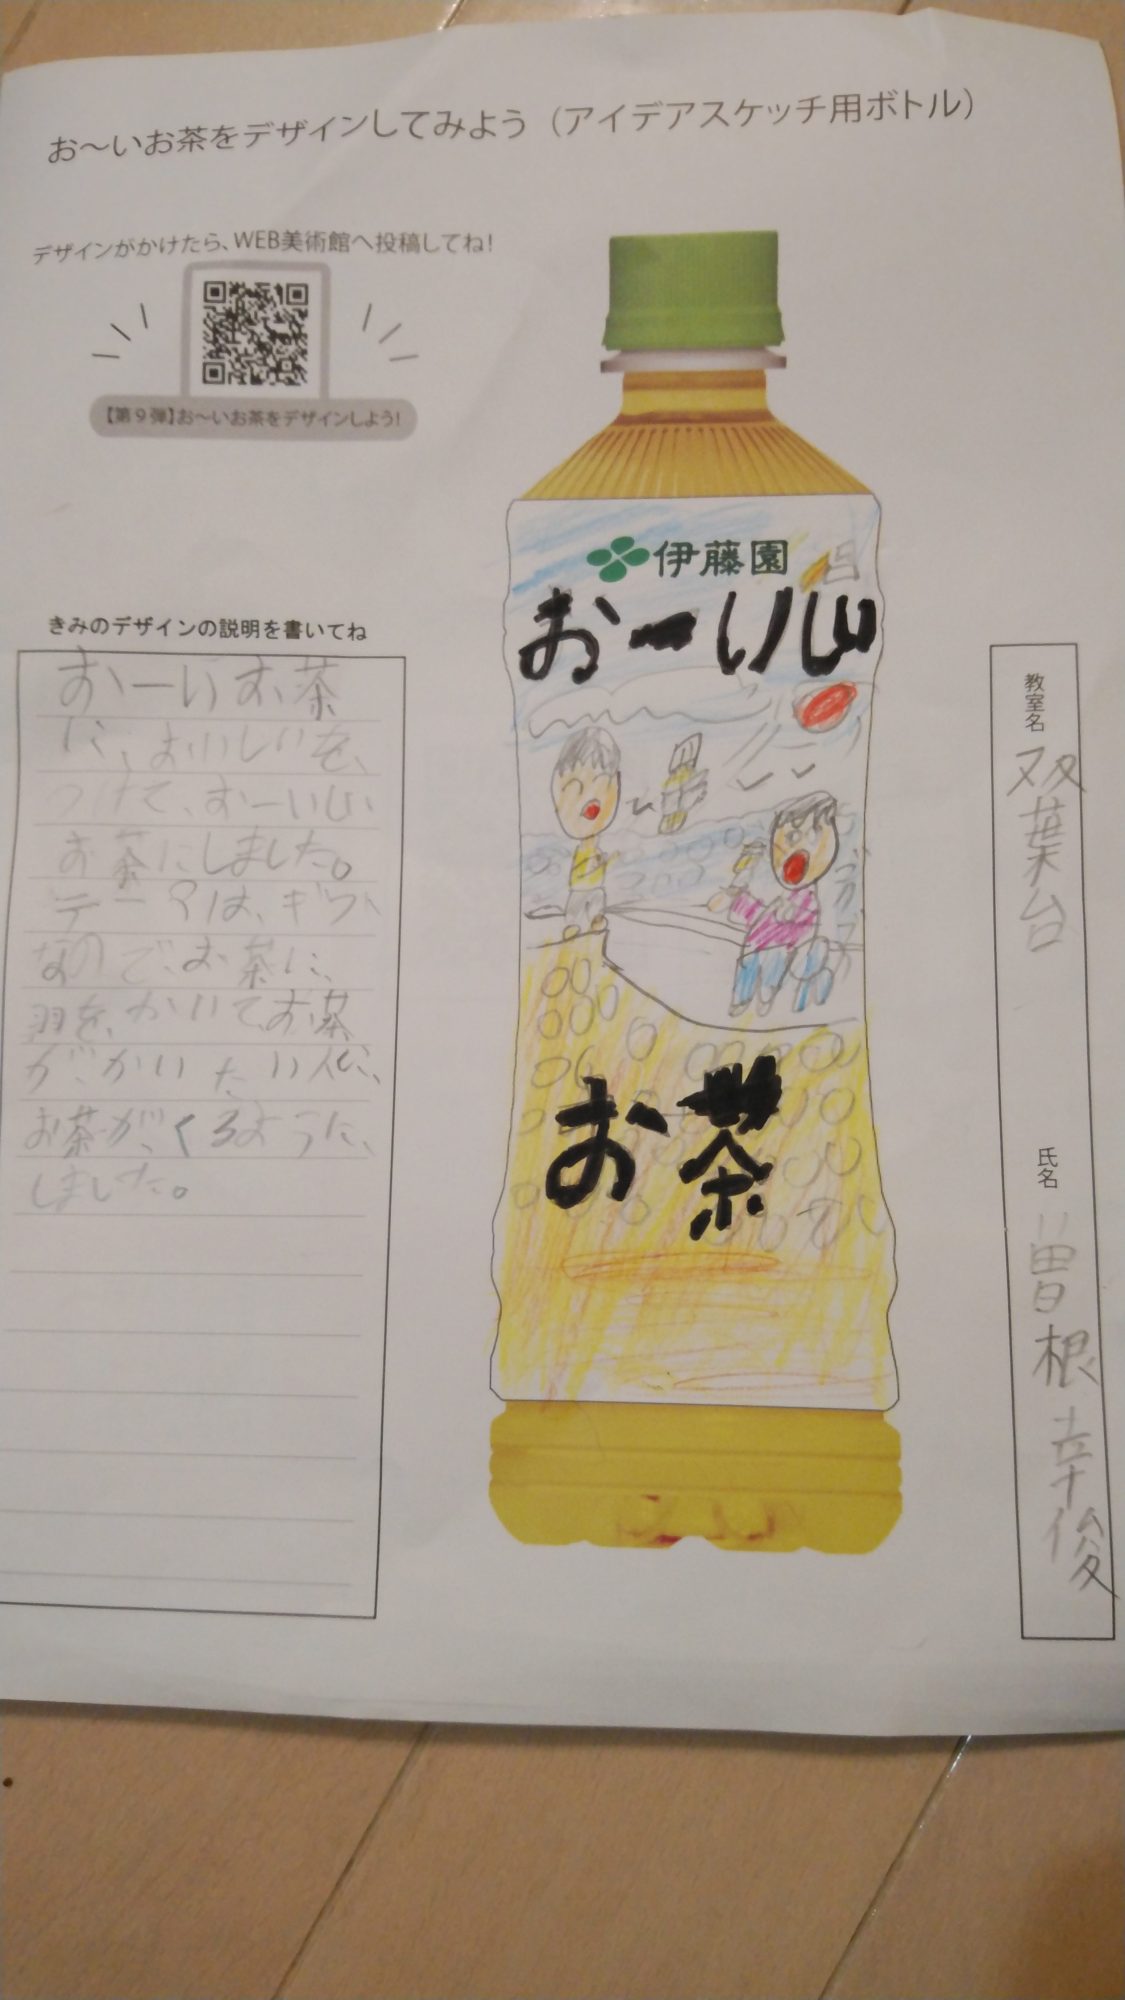 お〜いお茶をデザインしてみよう（アイデアスケッチ用ボトル）
デザインがかけたら、WEB美術館へ投稿してね！
【第9弾】お〜いお茶をデザインしよう！
伊藤園
おーいしい
お茶
きみのデザインの説明を書いてね
おーいお茶
に、おいしいを、
つけて、おーいしい
お茶にしました。
テーマは、ギフト
なのでお茶に、
羽を、かいてお茶
が、かいたい人に、
お茶が、くるように、
しました。
教室名
双葉台
氏名
曽根幸俊